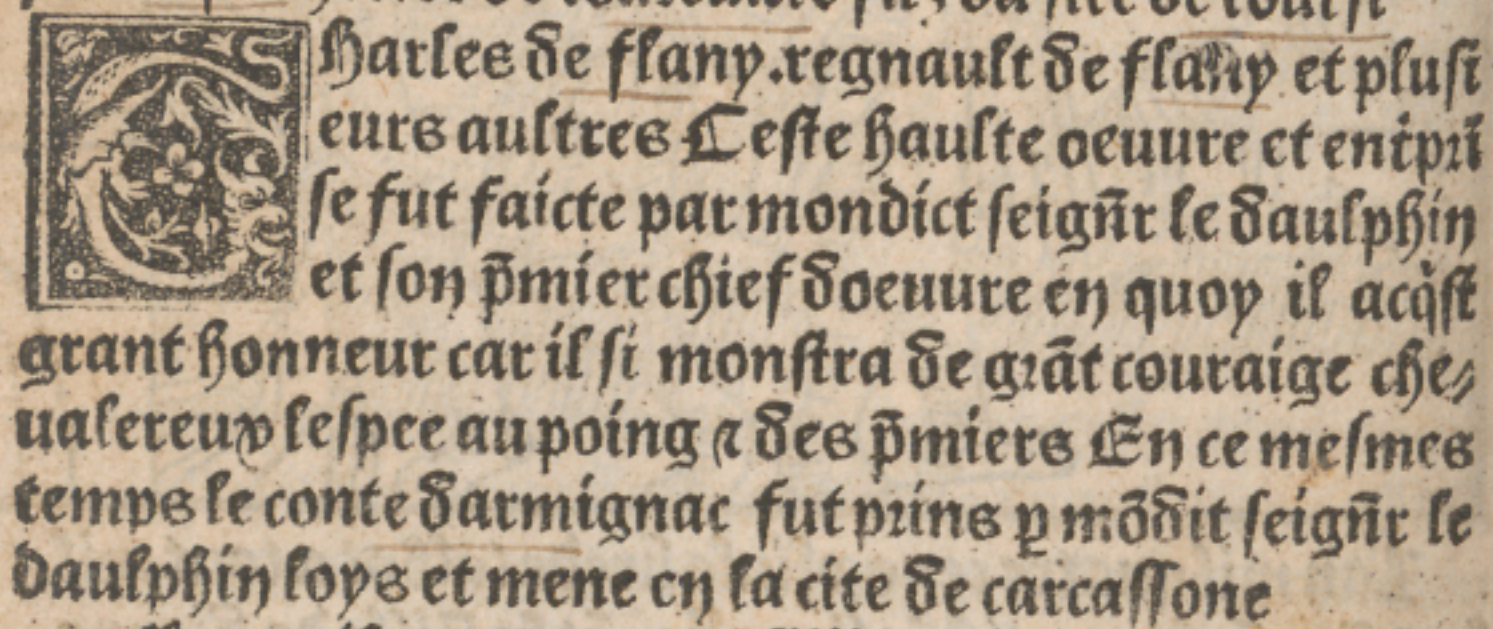 Charles de flany.regnault de flany et plusi
eurs aultres Ceste haulte oeuure et entṗrĩ
se fut faicte par mondict seigñr le daulphin
et son p̄mier chief doeuure en quoy il acq̇st
grant honneur car il si monstra de grãt couraige che⸗
ualereux lespee au poing ⁊ des p̄miers En ce mesmes
temps le conte darmignac fut prins ꝑ mõdit seigñr le
daulphin loys et mene en la cite de carcassone